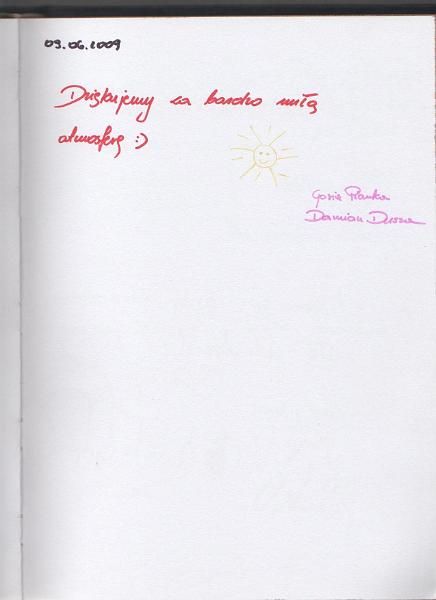 09.06.2009
Dziękujemy za bardzo miłą
atmosferę :)
Gosia
Damian